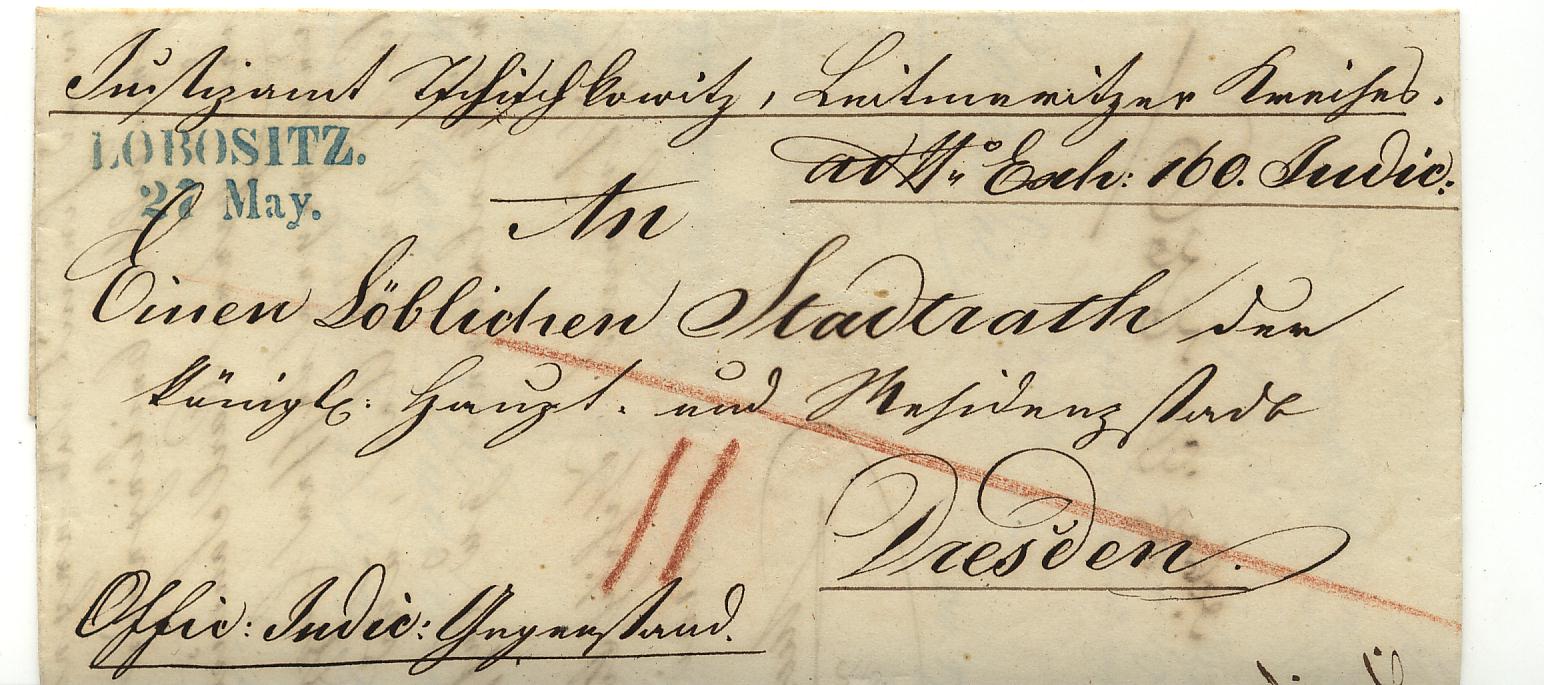 Justizamt Tschischkowitz, Leitmeritzer Kreises.
LOBOSITZ.
27 May.
ad No Exh: 160. Judic:
An
Einen Löblichen Stadtrath der
königl: Haupt- und Residenzstadt
Dresden.
Offic: Judic: Gegenstand.